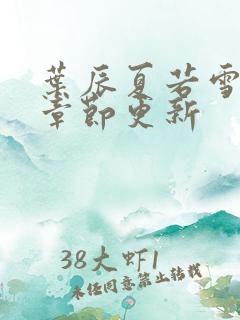 葉辰夏若雪
章節更新
38大虾1
未经同意禁止转载